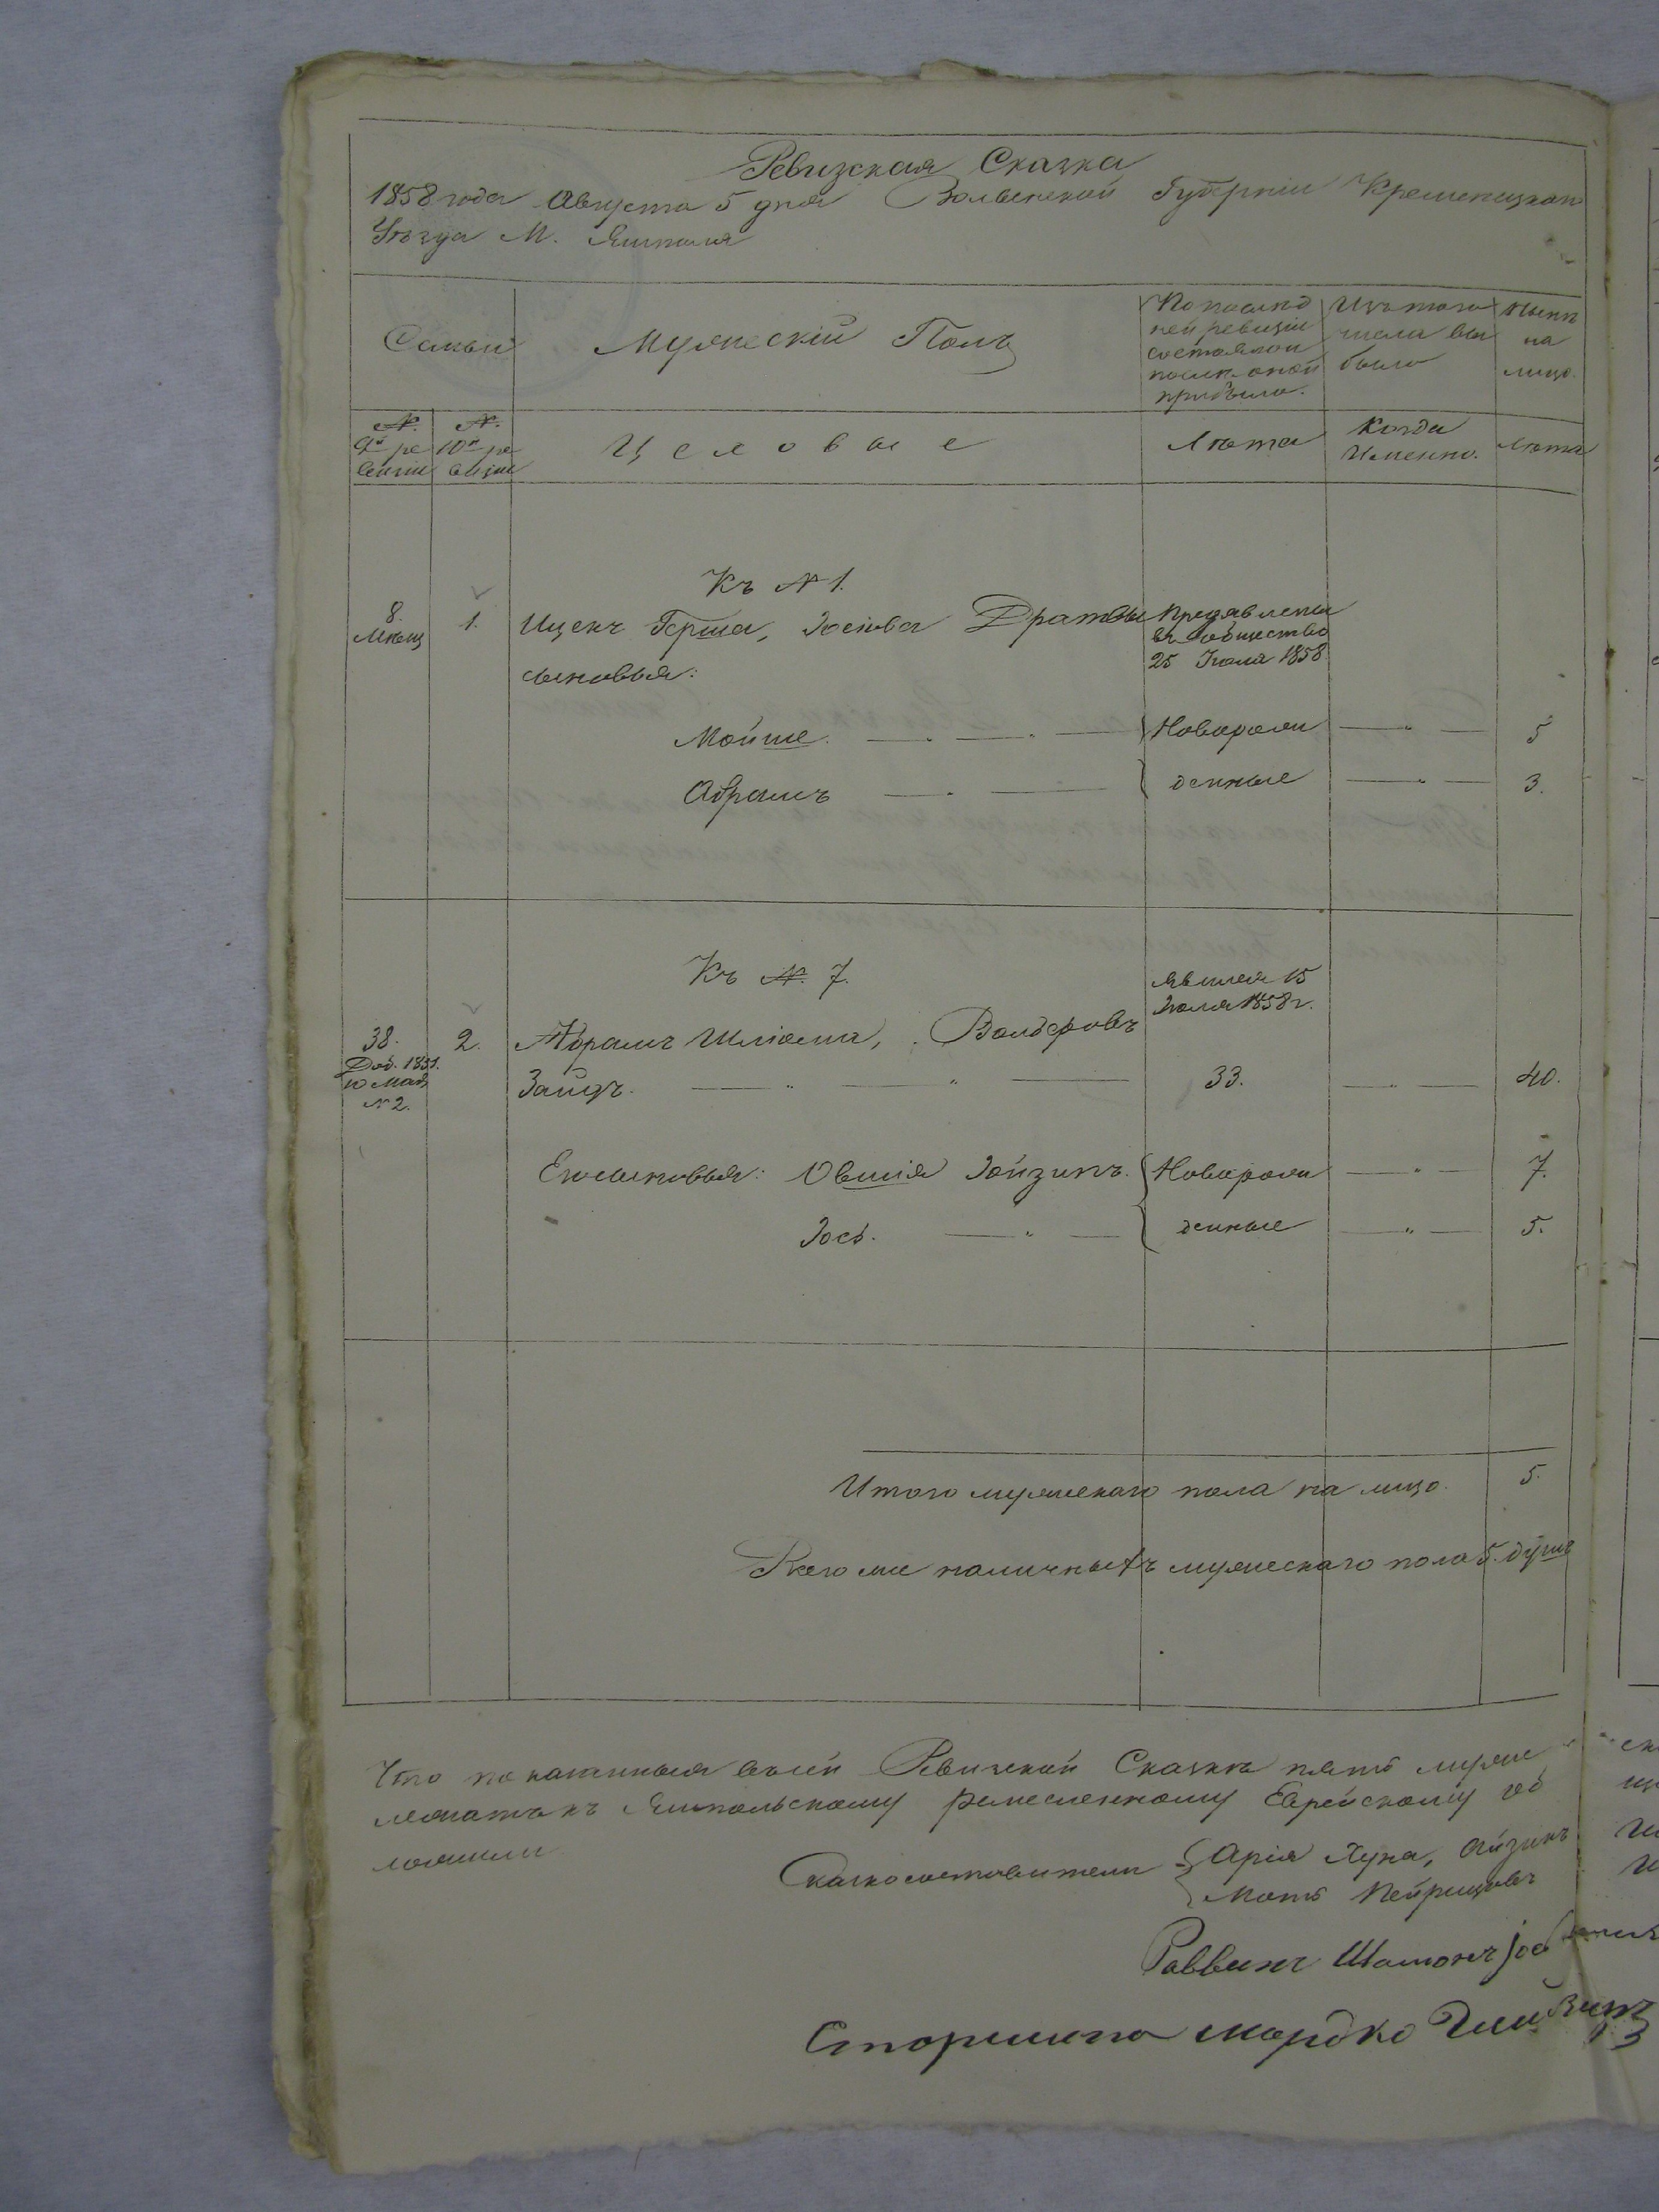 Ревизская Сказка
1858 года Августа 5 дня Волынской Губерніи Кременецкаго
Уѣзда М. Ямполя
Семьи
Мужескій Полъ
По послѣд
ней ревизіи
состояло и
послѣ оной
прибыло.
Изъ того
числа вы
было
Нынѣ
на
лицо.
№.
9й ре
визіи
№.
10й ре
визіи
Цеховые
Лѣта
Когда
Именно.
Лѣта
Къ № 1.
8.
Мѣщ
1.
Ицекъ Герша, Іосіова Дратвы
Предявлены
въ общество
25 Іюля 1858
сыновья:
Мойше.
Новорож
5
Абрамъ
денные
3.
Къ №. 7.
явился 15
Іюля 1858 г.
38.
Доб. 1851.
10 Мая
№ 2.
2.
Абрамъ Шліома, Вольфовъ
Зайдъ.
33.
40.
Его сыновья: Овшія Іойзипъ.
Новорож
7.
Іось.
денные
5.
Итого мужескаго пола на лицо.
5.
Всего же наличныхъ мужескаго пола 5. душъ
Что показанныя въ сей Ревизской Сказкѣ пять муже
лежатъ къ Ямпольскому ремесленному Еврейскому об
ложили
Сказкосоставители
Арія Хуна, Айзикъ
Мотъ Пейрицовъ
Раввинъ Шамонъ
Старшина Мордко